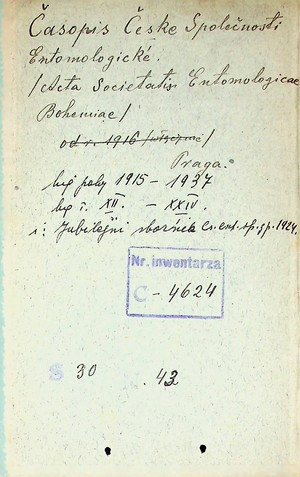 Časopis České Společnosti
Entomologické.
/Acta Societatis Entomologicae
Bohemiae/
od r. 1916 /włącznie/
Praga.
1915 – 1937
XII. – XXIV.
i: Jubilejni sbornik čs. ent. sp. 1924.
Nr. inwentarza
C – 4624
S 30
. 43